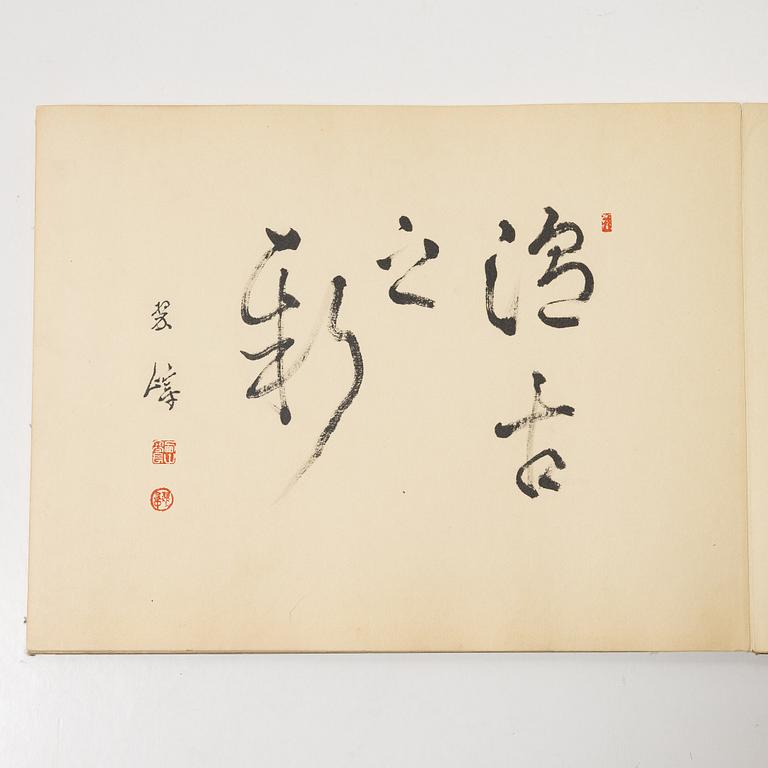 温古
之
新
翠嶂